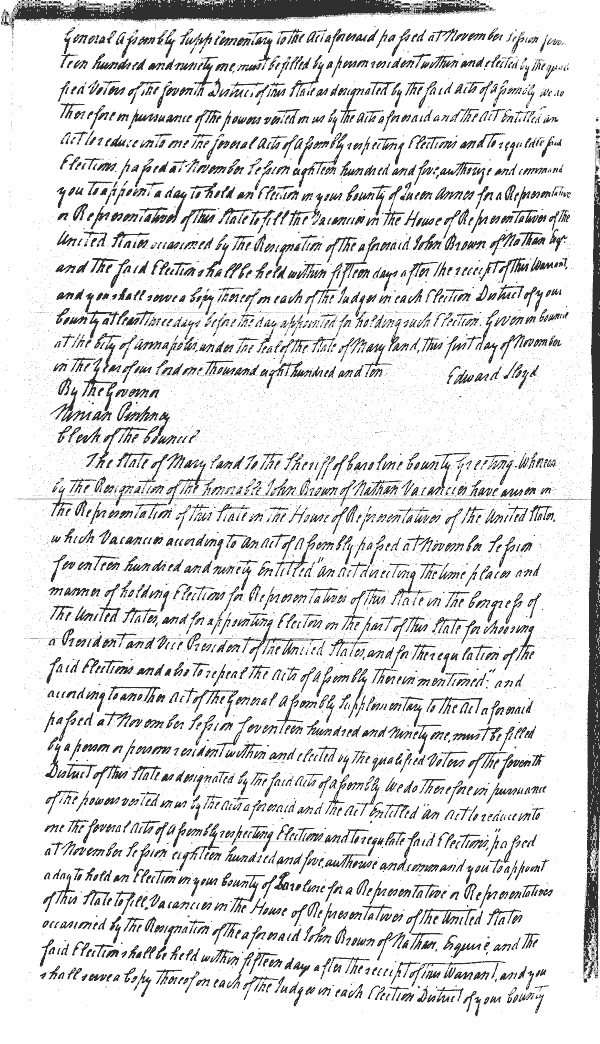 General Assembly Supplementary to the Act aforesaid passed at November Session seven
teen hundred and ninety one, must be filled by a person resident within and elected by the quali
fied Voters of the seventh District of this State as designated by the said Acts of Assembly we do
therefore in pursuance of the powers vested in us by the Acts aforesaid and the Act Entitled an
Act to reduce into one the several Acts of Assembly respecting Elections and to regulate said
Elections, passed at November Session eighteen hundred and five, authorize and command
you to appoint a day to hold an Election in your County of Queen Annes for a Representative
or Representatives of this State to fill the Vacancies in the House of Representatives of the
United States occasioned by the Resignation of the aforesaid John Brown of Nathan Esqr.
and the said Election shall be held within fifteen days after the receipt of this Warrant,
and you shall serve a Copy thereof on each of the Judges in each Election District of your
County at least three days before the day appointed for holding such Election. Given in Council
at the City of Annapolis, under the Seal of the State of Maryland, this first day of November
in the Year of our Lord one thousand eight hundred and ten
Edward Lloyd
By the Governor
Ninian Pinkney
Clerk of the Council
The State of Maryland To the Sheriff of Caroline County Greeting. Whereas
by the Resignation of the honorable John Brown of Nathan Vacancies have arisen in
the Representation of this State in the House of Representatives of the United States,
which Vacancies according to an Act of Assembly passed at November Session
seventeen hundred and ninety Entitled "an act directing the time places and
manner of holding Elections for Representatives of this State in the Congress of
the United States, and for appointing Electors on the part of this State for choosing
a President and Vice President of the United States, and for the regulation of the
said Elections and also to repeal the Acts of Assembly therein mentioned", and
according to another Act of the General Assembly Supplementary to the Act aforesaid
passed at November Session seventeen hundred and Ninety one, must be filled
by a person or persons resident within and elected by the qualified Voters of the seventh
District of this State as designated by the said Acts of Assembly. We do therefore in pursuance
of the powers vested in us by the Acts aforesaid and the Act Entitled "an Act to reduce into
one the several Acts of Assembly respecting Elections and to regulate said Elections," passed
at November Session eighteen hundred and five, authorise and command you to appoint
a day to hold an Election in your County of Caroline for a Representative or Representatives
of this State to fill, Vacancies in the House of Representatives of the United States
occasioned by the Resignation of the aforesaid John Brown of Nathan, Esquire, and the
said Election shall be held within fifteen days after the receipt of this Warrant, and you
shall serve a Copy thereof on each of the Judges in each Election District of your County